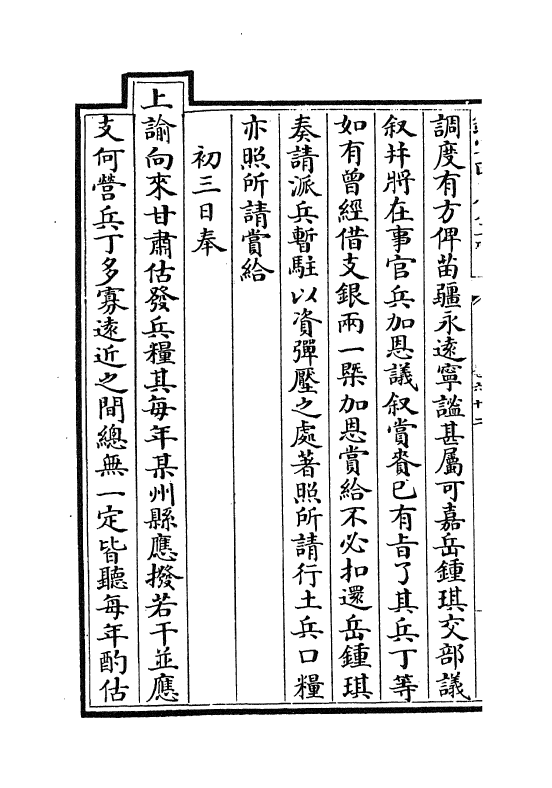 調度有方俾苗疆永遠寧謐甚屬可嘉岳鍾琪交部議
叙幷將在事官兵加恩議叙賞賚已有㫖了其兵丁等
如有曾經借支銀兩一槩加恩賞給不必扣還岳鍾琪
奏請派兵暫駐以資彈壓之處著照所請行土兵口糧
亦照所請賞給
初三日奉
上諭向來甘肅估發兵糧其每年某州縣應撥若干並應
支何營兵丁多寡遠近之間總無一定皆聽每年酌估